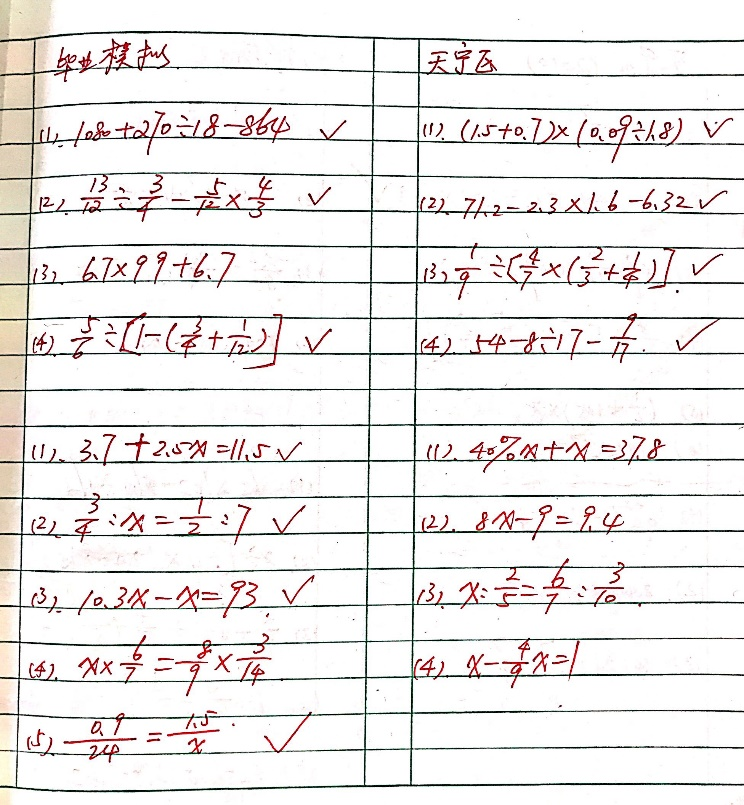 毕业模拟
(1). 1080+270÷18-864 ✓
(2). 13/12÷3/4-5/12×4/3 ✓
(3). 6.7×99+6.7
(4). 5/6÷[1-(3/4+1/12)] ✓
(1). 3.7+2.5x=11.5 ✓
(2). 3/4:x=1/2:7 ✓
(3). 10.3x-x=93. ✓
(4). x×6/7=8/9×3/14
(5). 0.9/24=1.5/x. ✓
天宁区
(1). (1.5+0.7)×(0.09÷1.8) ✓
(2). 71.2-2.3×1.6-6.32 ✓
(3). 1/9÷[4/7×(2/3+1/4)]. ✓
(4). 54-8÷17-9/17. ✓
(1). 40%x+x=37.8
(2). 8x-9=9.4
(3). x:2/5=6/7:3/10.
(4). x-4/9x=1